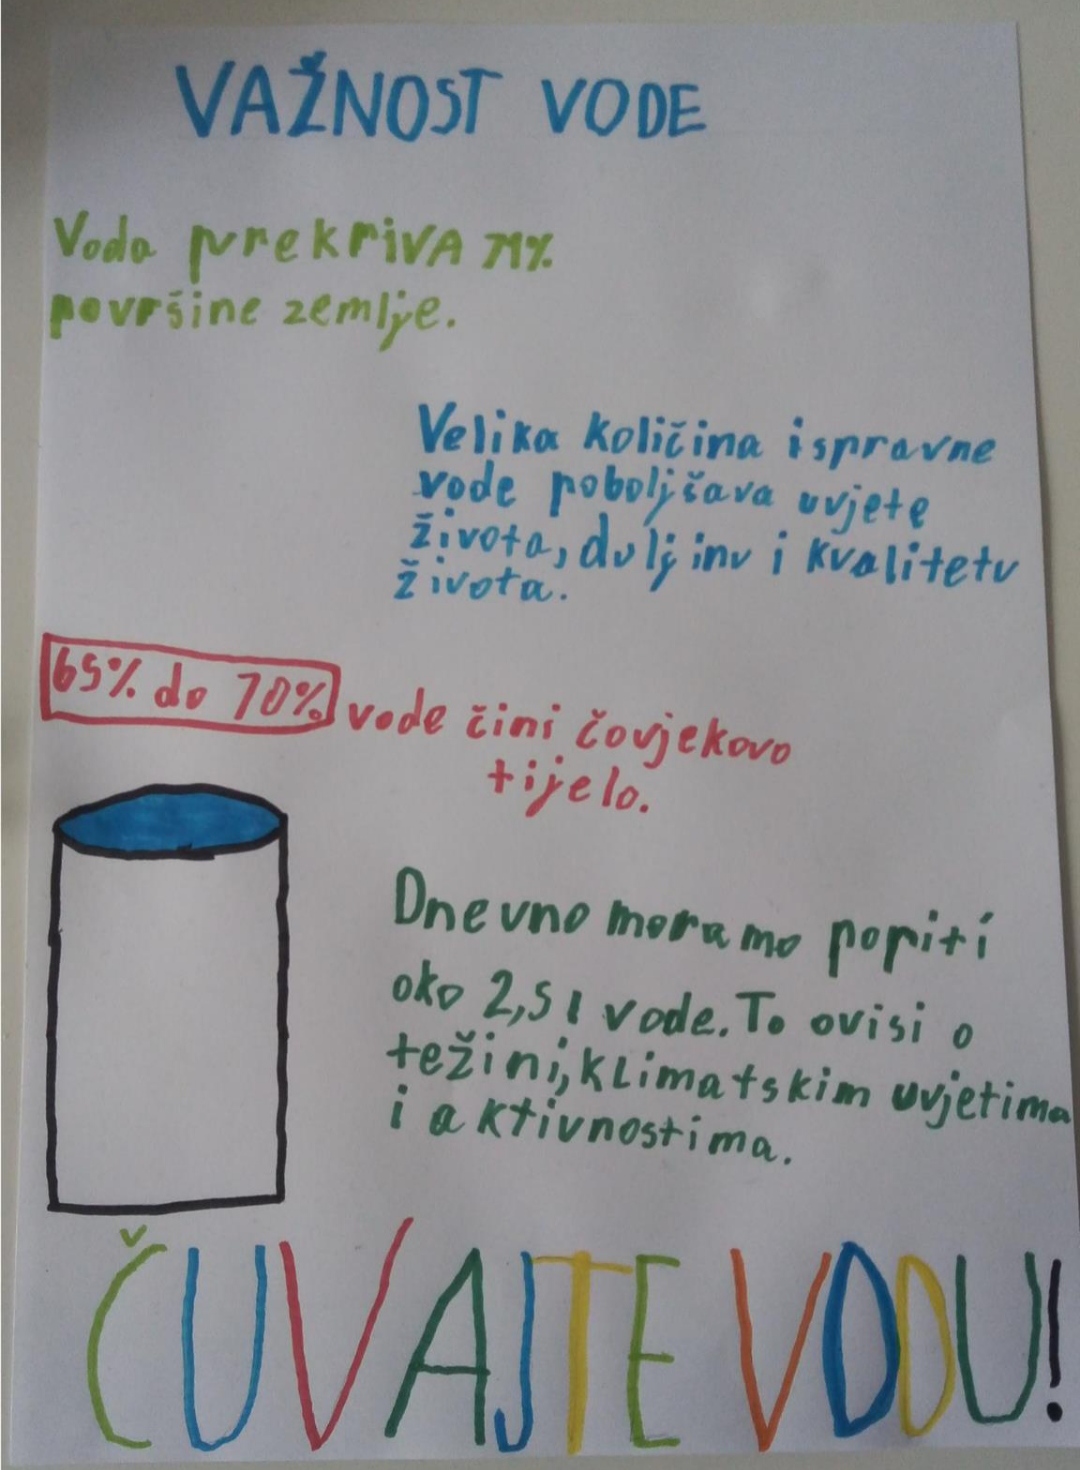 VAŽNOST VODE
Voda prekriVA 71%
površine zemlje.
Velika količina ispravne
vode poboljšava uvjete
života, duljinu i kvalitetu
života.
65% do 70% vode čini čovjekovo
tijelo.
Dnevno moramo popiti
oko 2,5 l vode. To ovisi o
težini, klimatskim uvjetima
i aktivnostima.
ČUVAJTE VODU!